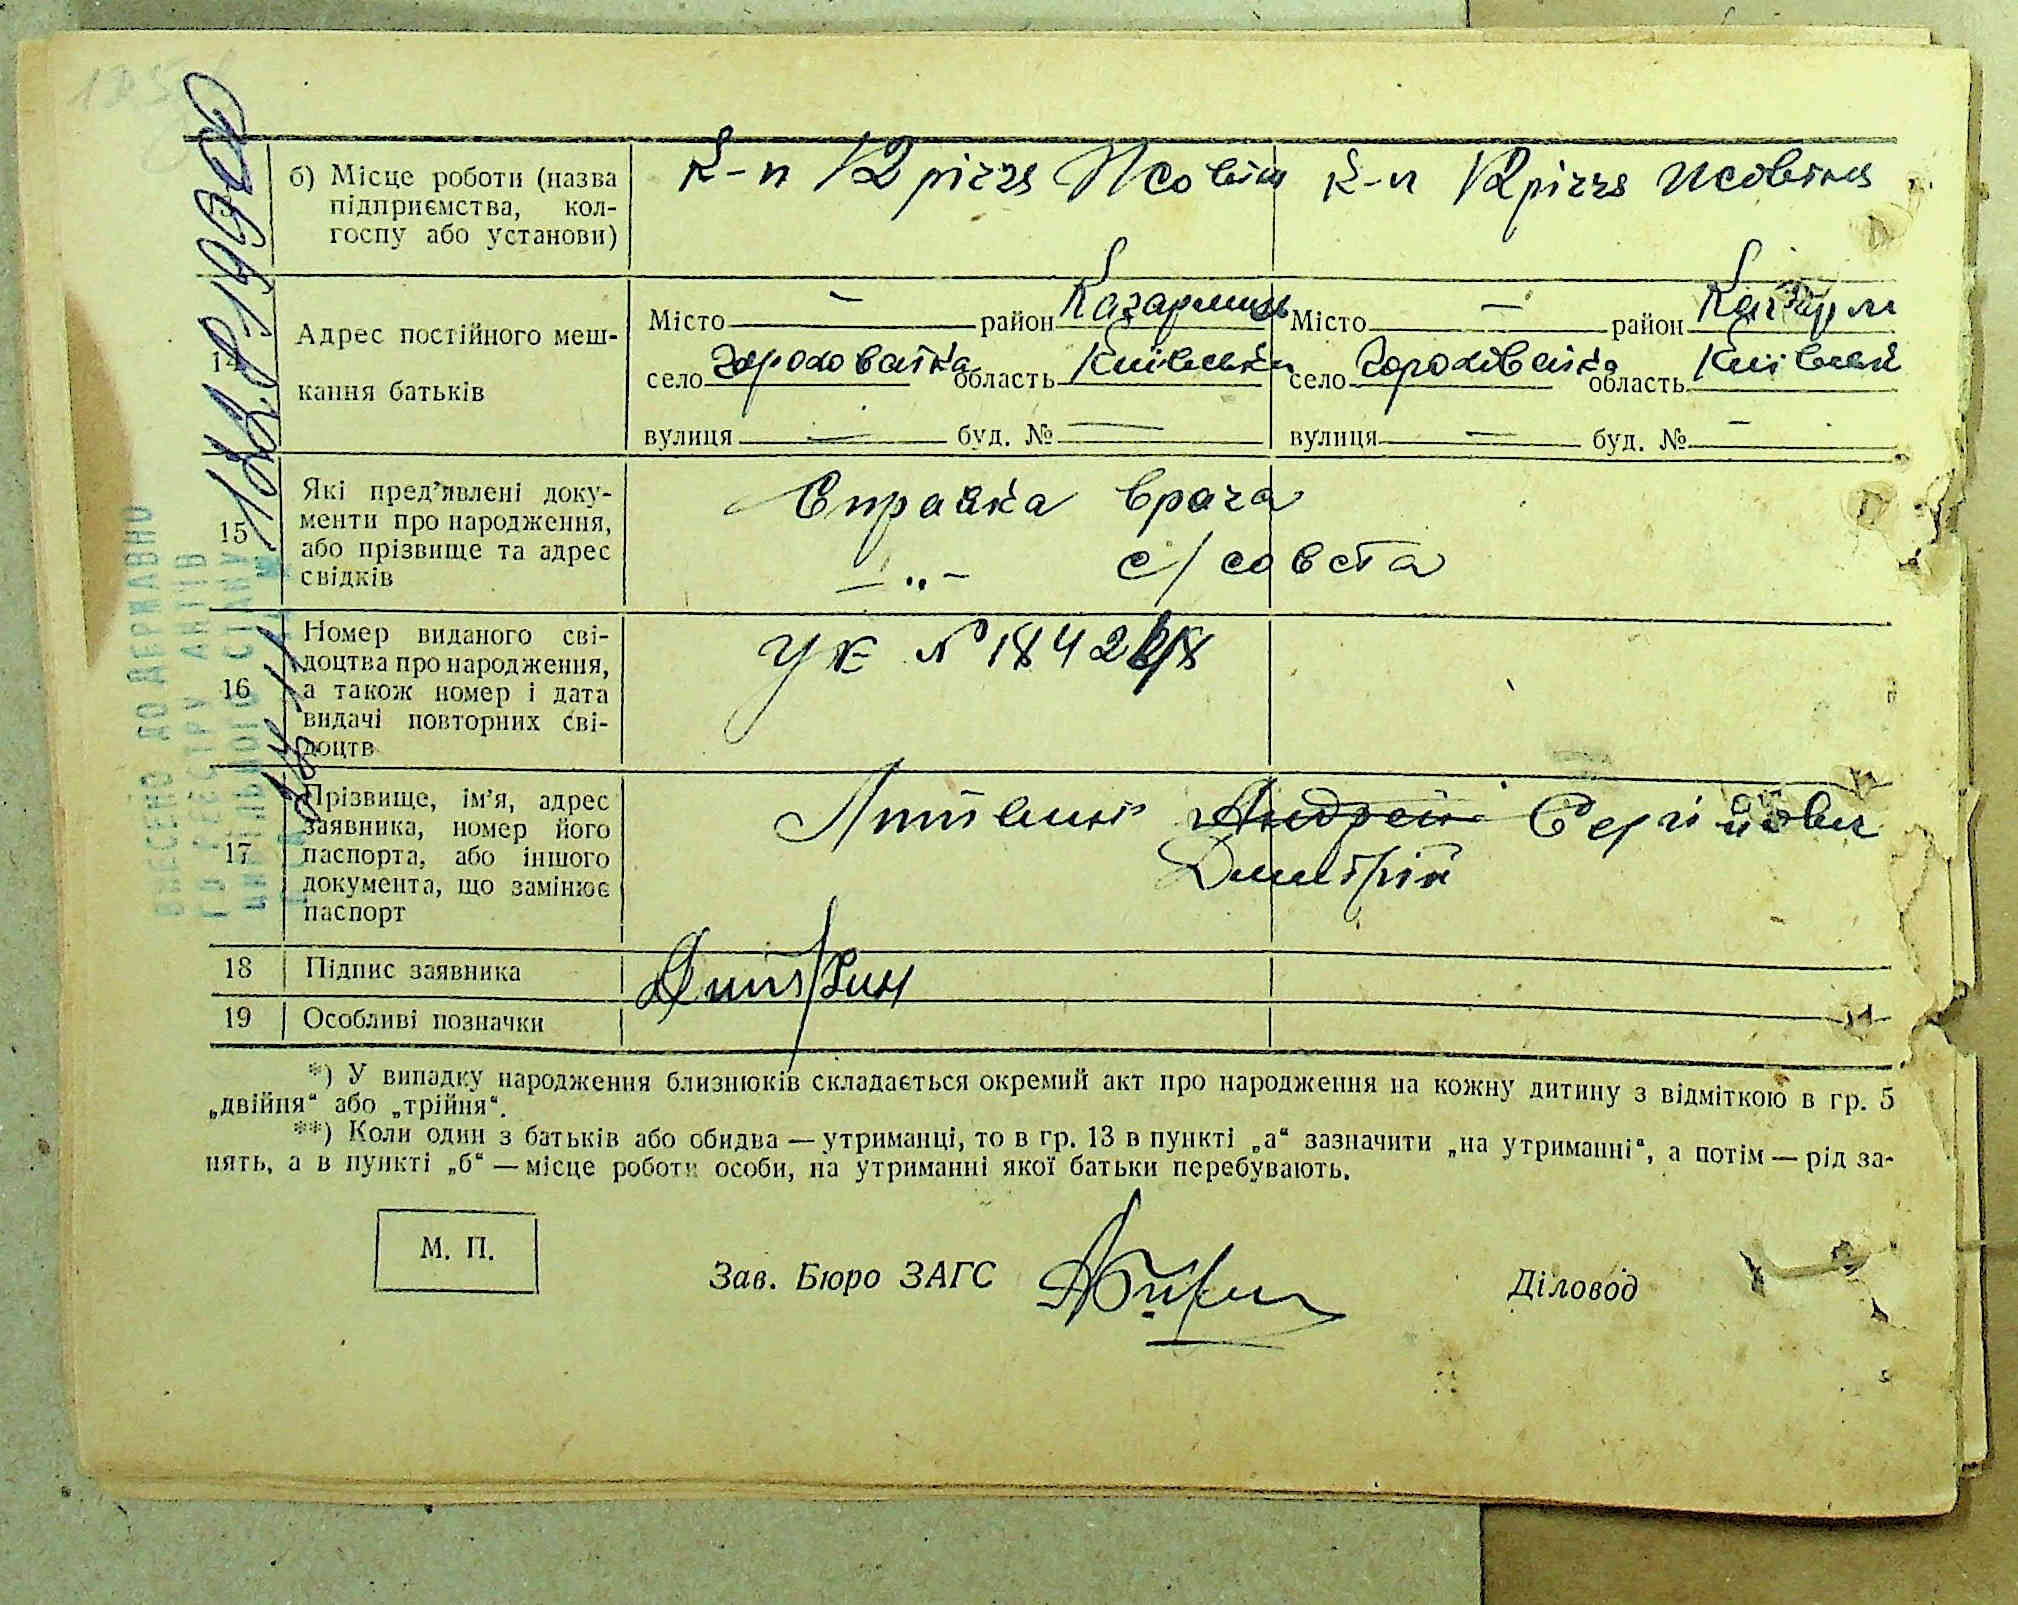 б) Місце роботи (назва
підприємства, кол-
госпу або установи)
к-п 12 річчя Жовтня
к-п 12 річчя Жовтня
14
Адрес постійного меш-
кання батьків
Місто — район
село Городоватка область Київська
вулиця — буд. № —
Місто — район
село область
вулиця — буд. № —
15
Які пред’явлені доку-
менти про народження,
або прізвище та адрес
свідків
Справка врача
—„— с/совета
16
Номер виданого сві-
доцтва про народження,
а також номер і дата
видачі повторних сві-
доцтв
УК №
17
Прізвище, ім’я, адрес
заявника, номер його
паспорта, або іншого
документа, що замінює
паспорт
Литвин Андрей Сергійович
Дмитрій
18
Підпис заявника
19
Особливі позначки
*) У випадку народження близнюків складається окремий акт про народження на кожну дитину з відміткою в гр. 5
„двійня“ або „трійня“.
**) Коли один з батьків або обидва — утриманці, то в гр. 13 в пункті „а“ зазначити „на утриманні“, а потім — рід за-
нять, а в пункті „б“ — місце роботи особи, на утриманні якої батьки перебувають.
М. П.
Зав. Бюро ЗАГС
Діловод